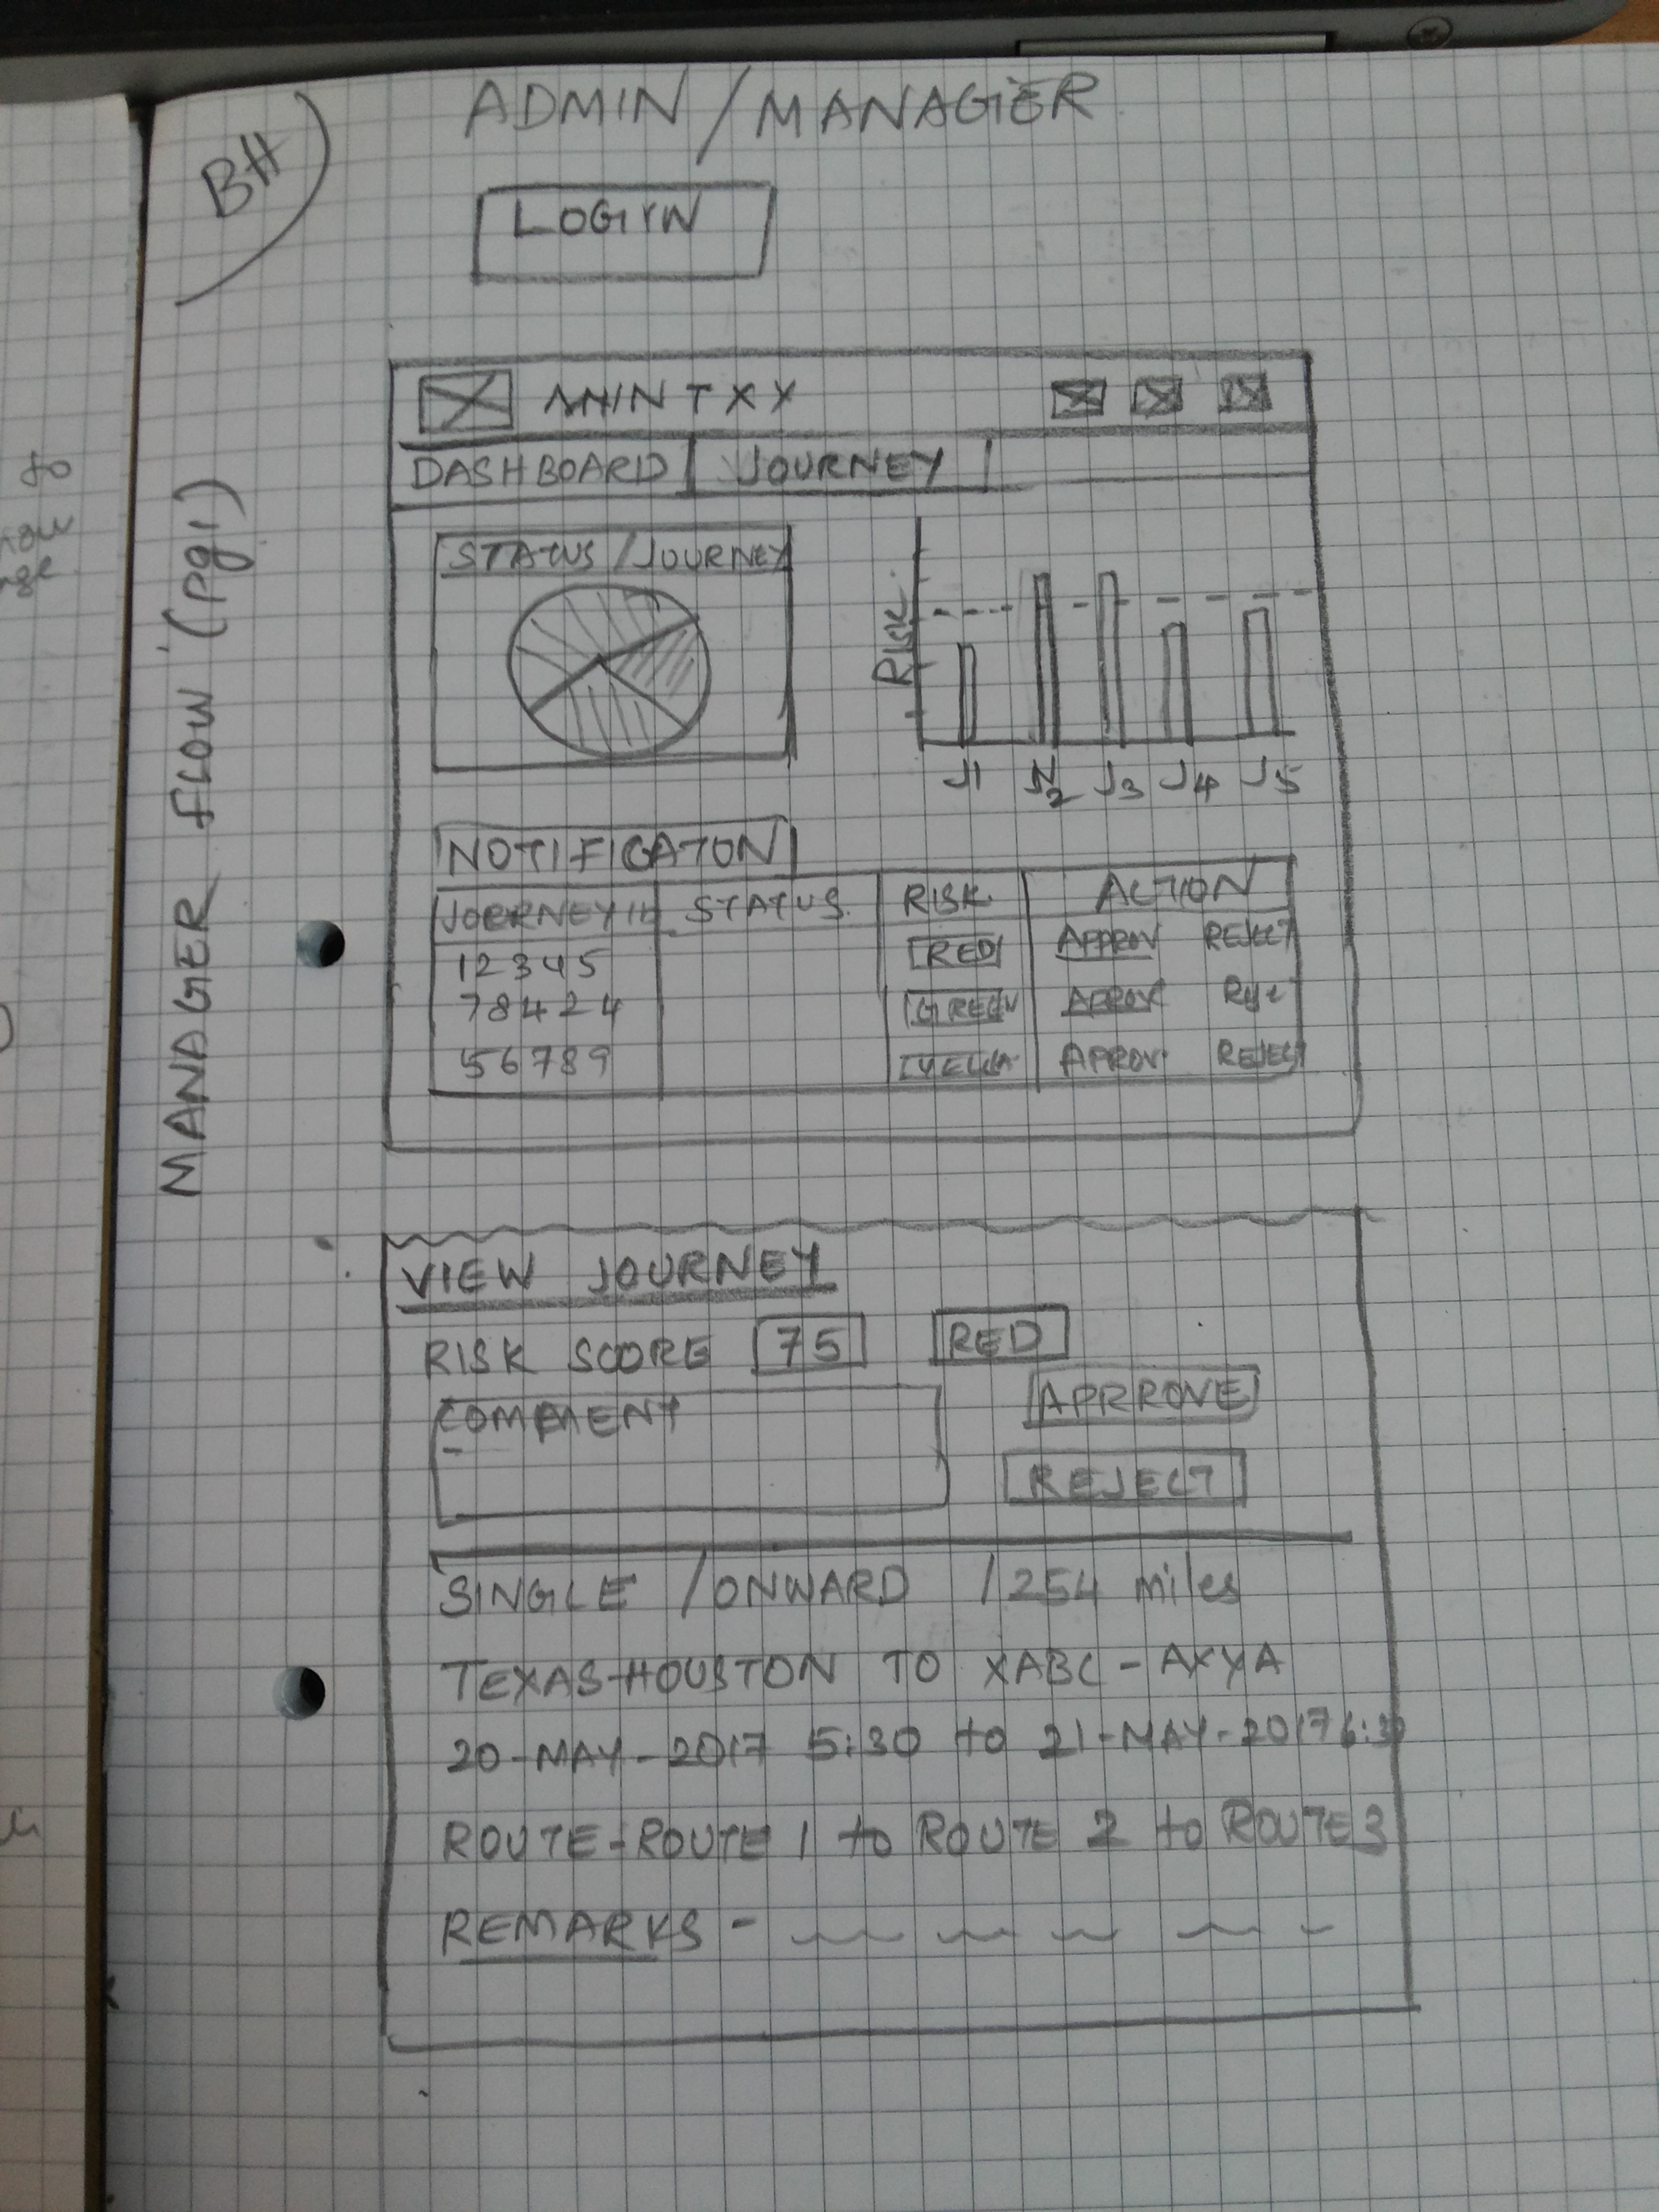 BH
ADMIN / MANAGER
LOGIN
MANAGER FLOW (pg1)
DASHBOARD JOURNEY
STATUS / JOURNEY
RISK
J1 J2 J3 J4 J5
NOTIFICATON
STATUS RISK ACTION
12345 RED APPROV REJECT
78424 GREEN APROV
56789 APROV REJECT
VIEW JOURNEY
RISK SCORE 75 RED
COMMENT
APRROVE
REJECT
SINGLE / ONWARD / 254 miles
TEXAS-HOUSTON TO XABC - AXYA
20-MAY-2017 5:30 to 21-MAY-2017 6:30
ROUTE - ROUTE 1 to ROUTE 2 to ROUTE 3
REMARKS -
to